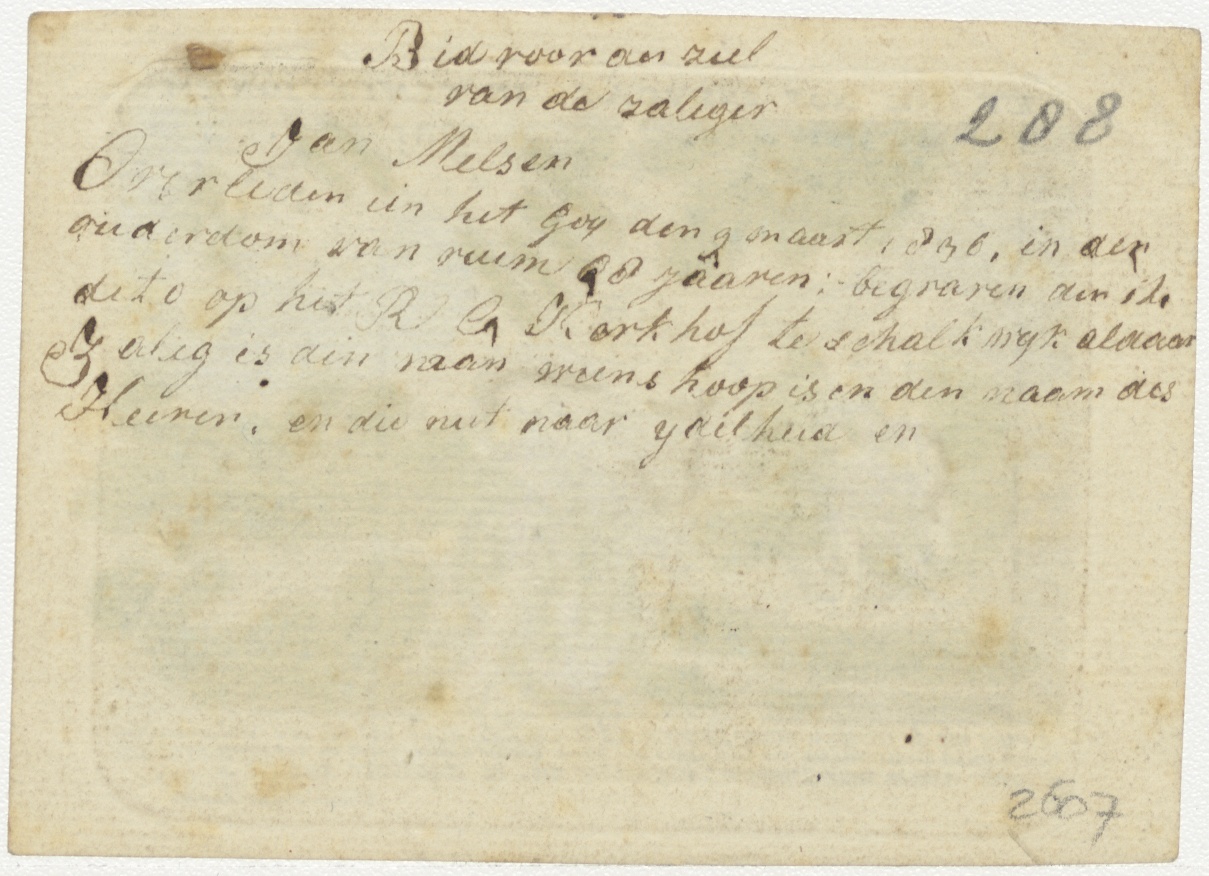 Bid voor de ziel
van de zaliger
288
Jan Melsen
Overleden in het Goy den 9 maart 1836, in den
ouderdom van ruim 68 jaaren; begraven den
dito op het R C Kerkhof te schalkwyk aldaar
Zalig is dien man wiens hoop is en den naam des
Heeren, en die niet naar ydelheid en
2607